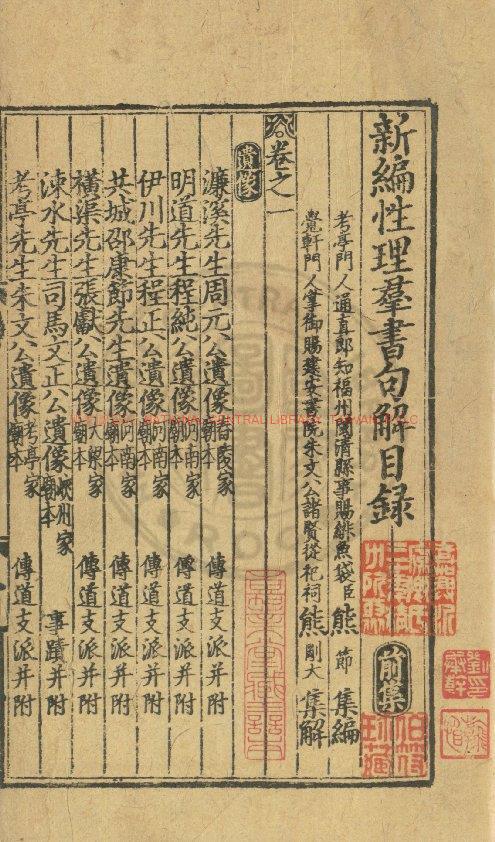 新編性理羣書句解目録 前集
考亭門人通直郎知福州閩清縣事賜緋魚袋臣熊節集編
覺軒門人掌御賜建安書院朱文公諸賢從祀祠熊剛大集解
卷之一
遺像
濂溪先生周元公遺像 舂陵家廟本 傳道支派并附
明道先生程純公遺像 河南家廟本 傳道支派并附
伊川先生程正公遺像 河南家廟本 傳道支派并附
共城邵康節先生遺像 河南家廟本 傳道支派并附
横渠先生張獻公遺像 大梁家廟本 傳道支派并附
涑水先生司馬文正公遺像 家廟本 事蹟并附
考亭先生朱文公遺像 考亭家廟本 傳道支派并附
NATIONAL CENTRAL LIBRARY, TAIWAN, R.O.C